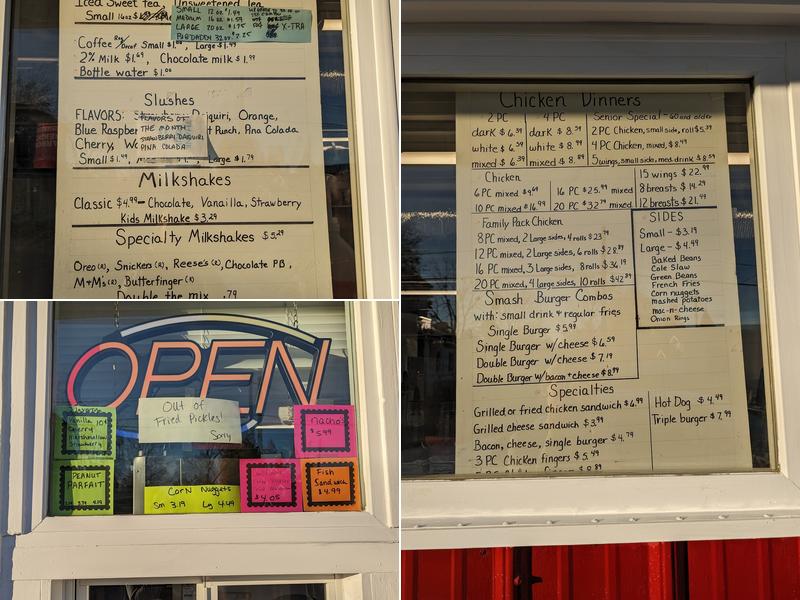 Iced Sweet tea, Unsweetened Tea
Small 16oz
SMALL 12 oz
MEDIUM 16 oz $1.59
LARGE 20 oz $1.75
32 oz $2.25
X-TRA
Coffee Reg/Decaf Small $1.00, Large $1.49
2% Milk $1.69, Chocolate milk $1.99
Bottle water $1.00
Slushes
FLAVORS: Strawberry Daquiri, Orange,
Blue Raspber t Punch, Pina Colada
Cherry, Wa
FLAVORS OF
THE MONTH
STRAWBERRY DAQUIRI
PINA COLADA
Small $1.49, Large $1.79
Milkshakes
Classic $4.99 - Chocolate, Vanailla, Strawberry
Kids Milkshake $3.29
Specialty Milkshakes $5.29
Oreo(R), Snickers(R), Reese's(R), Chocolate PB,
M+M's(R), Butterfinger(R)
Double the mix .79
OPEN
Out of
Fried Pickles!
Sorry
Vanilla
Cherry
Marshmallow
Strawberry
PEANUT
PARFAIT
Corn Nuggets
Sm 3.19 Lg 4.49
nacho
$5.99
$4.05
Fish
Sandwich
$4.99
Chicken Dinners
2 PC
dark $6.59
white $6.99
mixed $6.39
4 PC
dark $8.59
white $8.99
mixed $8.89
Senior Special - 60 and older
2 PC Chicken, small side, roll $5.39
4 PC Chicken, mixed, $8.49
5 wings, small side, med. drink $8.59
Chicken
6 PC mixed $9.69
10 PC mixed $16.99
16 PC $25.99 mixed
20 PC $32.79 mixed
15 wings $22.99
8 breasts $14.29
12 breasts $21.49
Family Pack Chicken
8 PC mixed, 2 Large sides, 4 rolls $23.79
12 PC mixed, 2 Large sides, 6 rolls $28.89
16 PC mixed, 3 Large sides, 8 rolls $36.19
20 PC mixed, 4 large sides, 10 rolls $42.89
SIDES
Small - $3.19
Large - $4.49
Baked Beans
Cole Slaw
Green Beans
French Fries
Corn nuggets
mashed potatoes
mac-n-cheese
Onion Rings
Smash Burger Combos
with: small drink & regular fries
Single Burger $5.99
Single Burger w/cheese $6.59
Double Burger w/cheese $7.19
Double Burger w/bacon + cheese $8.99
Specialties
Grilled or fried chicken sandwich $6.99
Grilled cheese sandwich $3.99
Bacon, cheese, single burger $4.79
3 PC Chicken fingers $5.49
Hot Dog $4.49
Triple burger $7.99